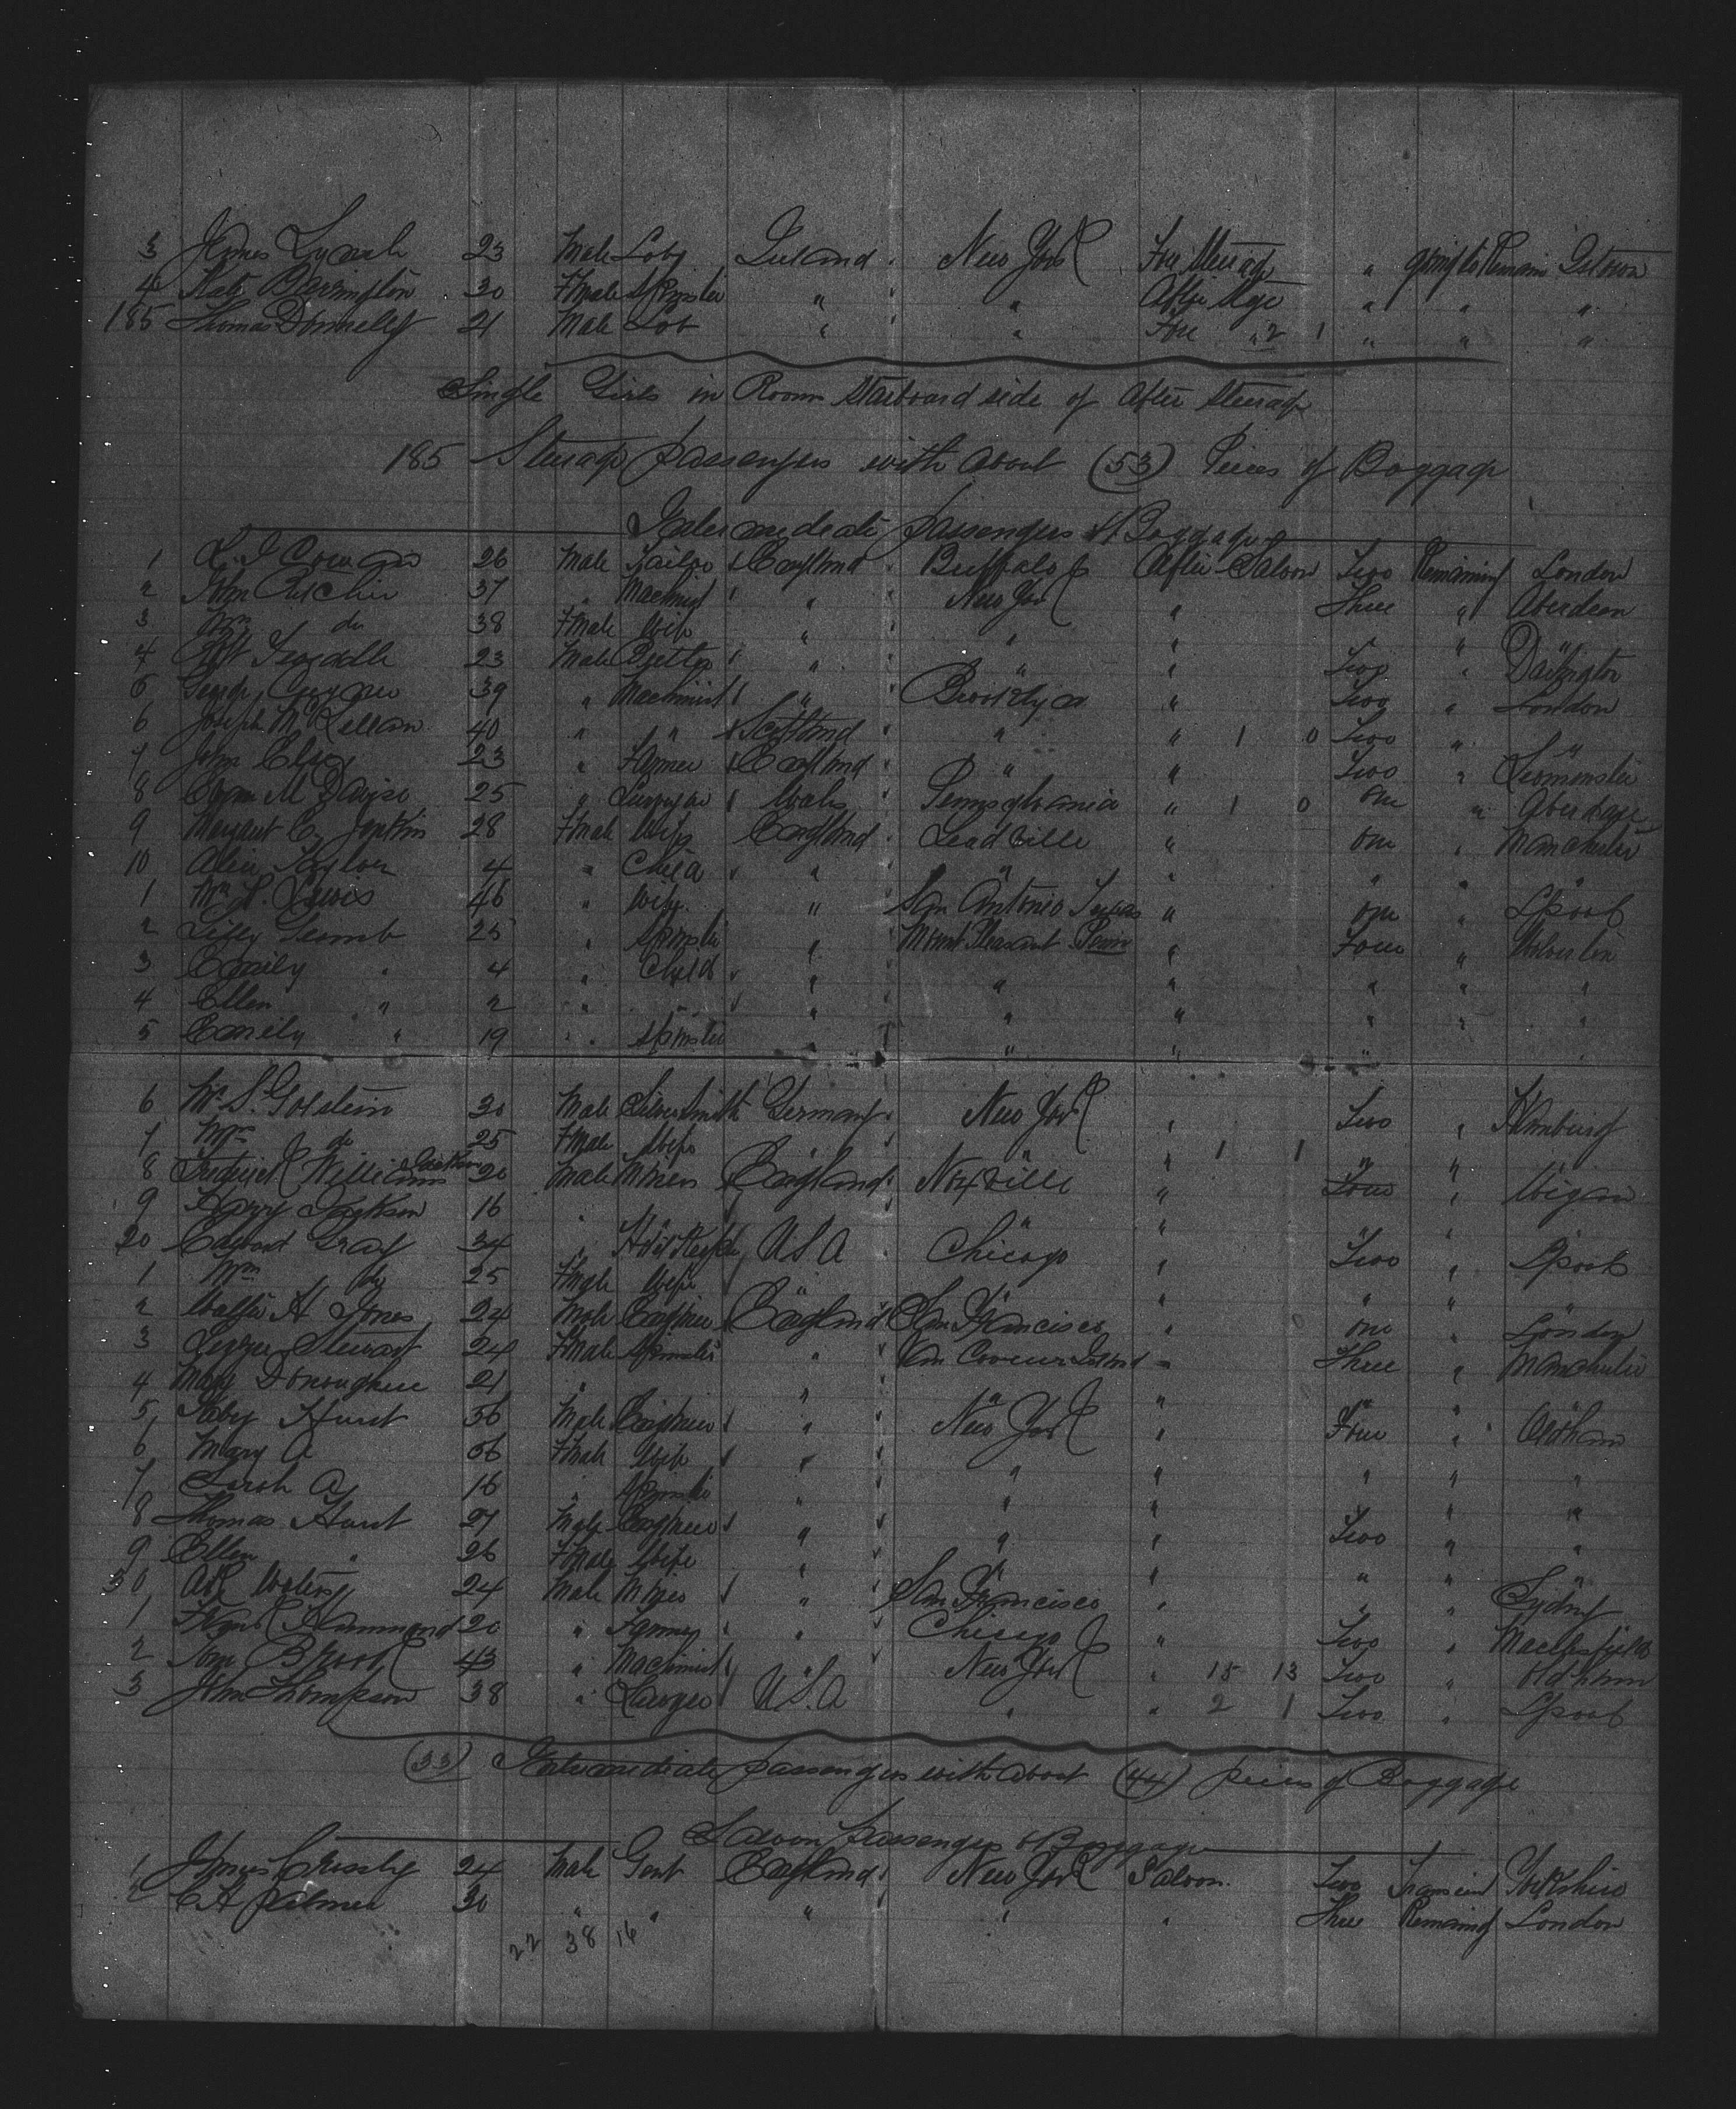 3 James Lynch 23 Male Labr Ireland New York Fore Steerage " going to Remain Qstown
4 Kate Barrington 30 Fmale Spinster " " After Stge " " "
185 Thomas Donnelly 21 Male Lab " " Fore " 2 1 " " "
Single Girls in Room Starboard side of After Steerage
185 Steerage passengers with about (53) Pieces of Baggage
Intermediate passengers & Baggage
1 26 Male Tailor England Buffalo After Saloon Two Remaining London
2 Wm Ritchie 37 " Machinist " New York " Three " Aberdeen
3 Mrs do 38 Fmale Wife " " " "
4 23 Male " " " Two " Darlington
5 George 39 " Machinist " Brooklyn " Two " London
6 Joseph McKellan 40 " " Scotland " " 1 0 Two " "
7 John 23 " Farmer England " " Two " Leominster
8 Evan M Davise 25 " Wales Pennsylvania " 1 0 one " Aberdare
9 Margaret E Jenkins 28 Fmale Wife England Leadville " one " Manchester
10 Alice Taylor 4 " Child " " " " " "
1 Mrs S. Lewis 46 " Wife " San Antonio Texas " one " Lpool
2 Lilly 25 " Spinster " Mount Pleasant Penn " Four "
3 Emily " 4 " Child " " " " " "
4 Ellen " 2 " " " " " " " "
5 Emily " 19 " Spinster " " " "
6 Mr S. Golstein 30 Male Silver Smith Germany New York " Two " Hamburg
7 Mrs do 25 Fmale Wife " " " 1 1 " "
8 Frederick Williams Jackson 20 Male Miner England " Four " Wigan
9 Harry Jackson 16 " " " "
20 Edward Gray 34 " Hotel Keeper U.S.A Chicago " Two " Lpool
1 Mrs do 25 Fmale Wife " " " " " "
2 Walter H Jones 24 Male Engineer England San Francisco " one " London
3 Stewart 24 Fmale Spinster " Van Couver Island " Three " Manchester
4 Mary Donoughue 21 " " " " " "
5 Hurst 56 Male Engineer " New York " Four " Oldham
6 Mary A 56 Fmale Wife " " " " " "
7 Sarah A 16 " Spinster " " " " "
8 Thomas Hurst 27 Male Engineer " " " Two " "
9 Ellen " 26 Fmale Wife " " " " " "
30 24 Male Miner " San Francisco " " " Sydney
1 Frank Hammond 20 " Farmer " Chicago " Two " Macclesfield
2 Wm Brook 43 " Machinist " New York " 15 13 Two " Oldham
3 John Thompson 38 " Lawyer U.S.A " " 2 1 Two " Lpool
(33) Intermediate passengers with about (44) pieces of Baggage
Saloon passengers & Baggage
1 James Crossley 24 Male Gent England New York Saloon Two Transient Yorkshire
2 C A Palmer 30 " " " " " Three Remaining London
22 38 16